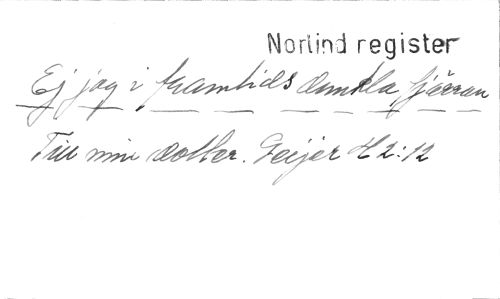 Norlind register
Ej jag i framtids dunkla fjärran
Till min dotter. Geijer H2:12